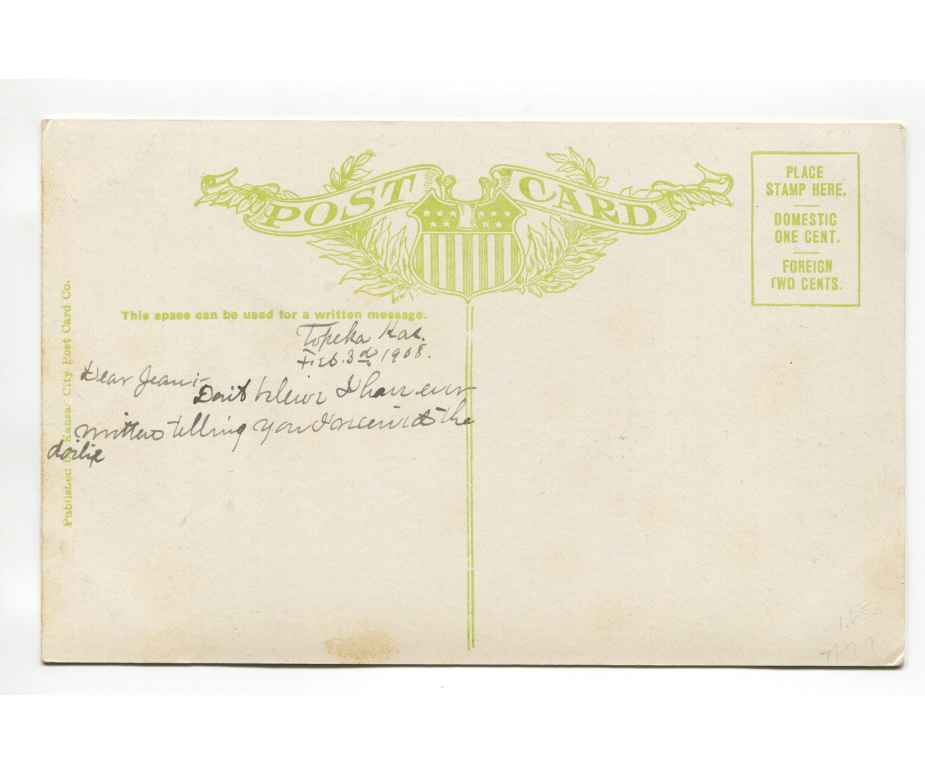 POST CARD
PLACE
STAMP HERE.
DOMESTIC
ONE CENT.
FOREIGN
TWO CENTS.
This space can be used for a written message.
Topeka Kas.
Feb. 3rd 1908.
Dear Jean
Don't believe I have ever
written telling you I received the
doilie
Published Kansas City Post Card Co.